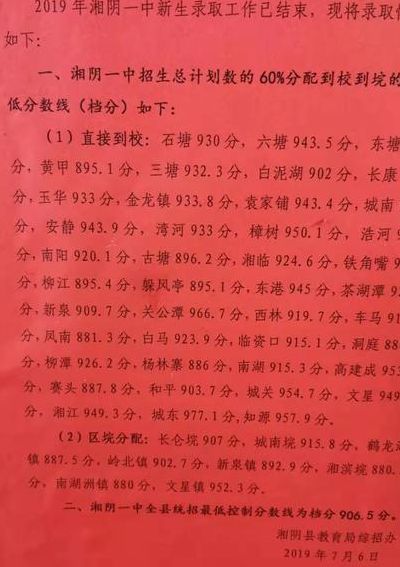 2019年湘阴一中新生录取工作已结束，现将录取
如下：
一、湘阴一中招生总计划数的60%分配到校到垸的
低分数线（档分）如下：
（1）直接到校：石塘930分，六塘943.5分，东塘
分，黄甲895.1分，三塘932.3分，白泥湖902分，长康
分，玉华933分，金龙镇933.8分，袁家铺943.4分，城南
分，安静943.9分，湾河933分，樟树950.1分，浩河
分，南阳920.1分，古塘896.2分，湘临924.6分，铁角嘴
分，柳江895.4分，躲风亭895.1分，东港945分，茶湖潭
分，新泉909.7分，关公潭966.7分，西林919.7分，车马91
分，凤南881.3分，白马923.9分，临资口915.1分，洞庭88
分，柳潭926.2分，杨林寨886分，南湖915.3分，高建成95
分，赛头887.8分，和平903.7分，城关954.7分，文星949
分，湘江949.3分，城东977.1分,知源957.9分。
（2）区垸分配：长仑垸907分，城南垸915.8分，鹤龙
镇887.5分，岭北镇902.7分，新泉镇892.9分，湘滨垸880.
分，南湖洲镇880分，文星镇952.3分。
二、湘阴一中全县统招最低控制分数线为档分906.5分。
湘阴县教育局综招办
2019年7月6日